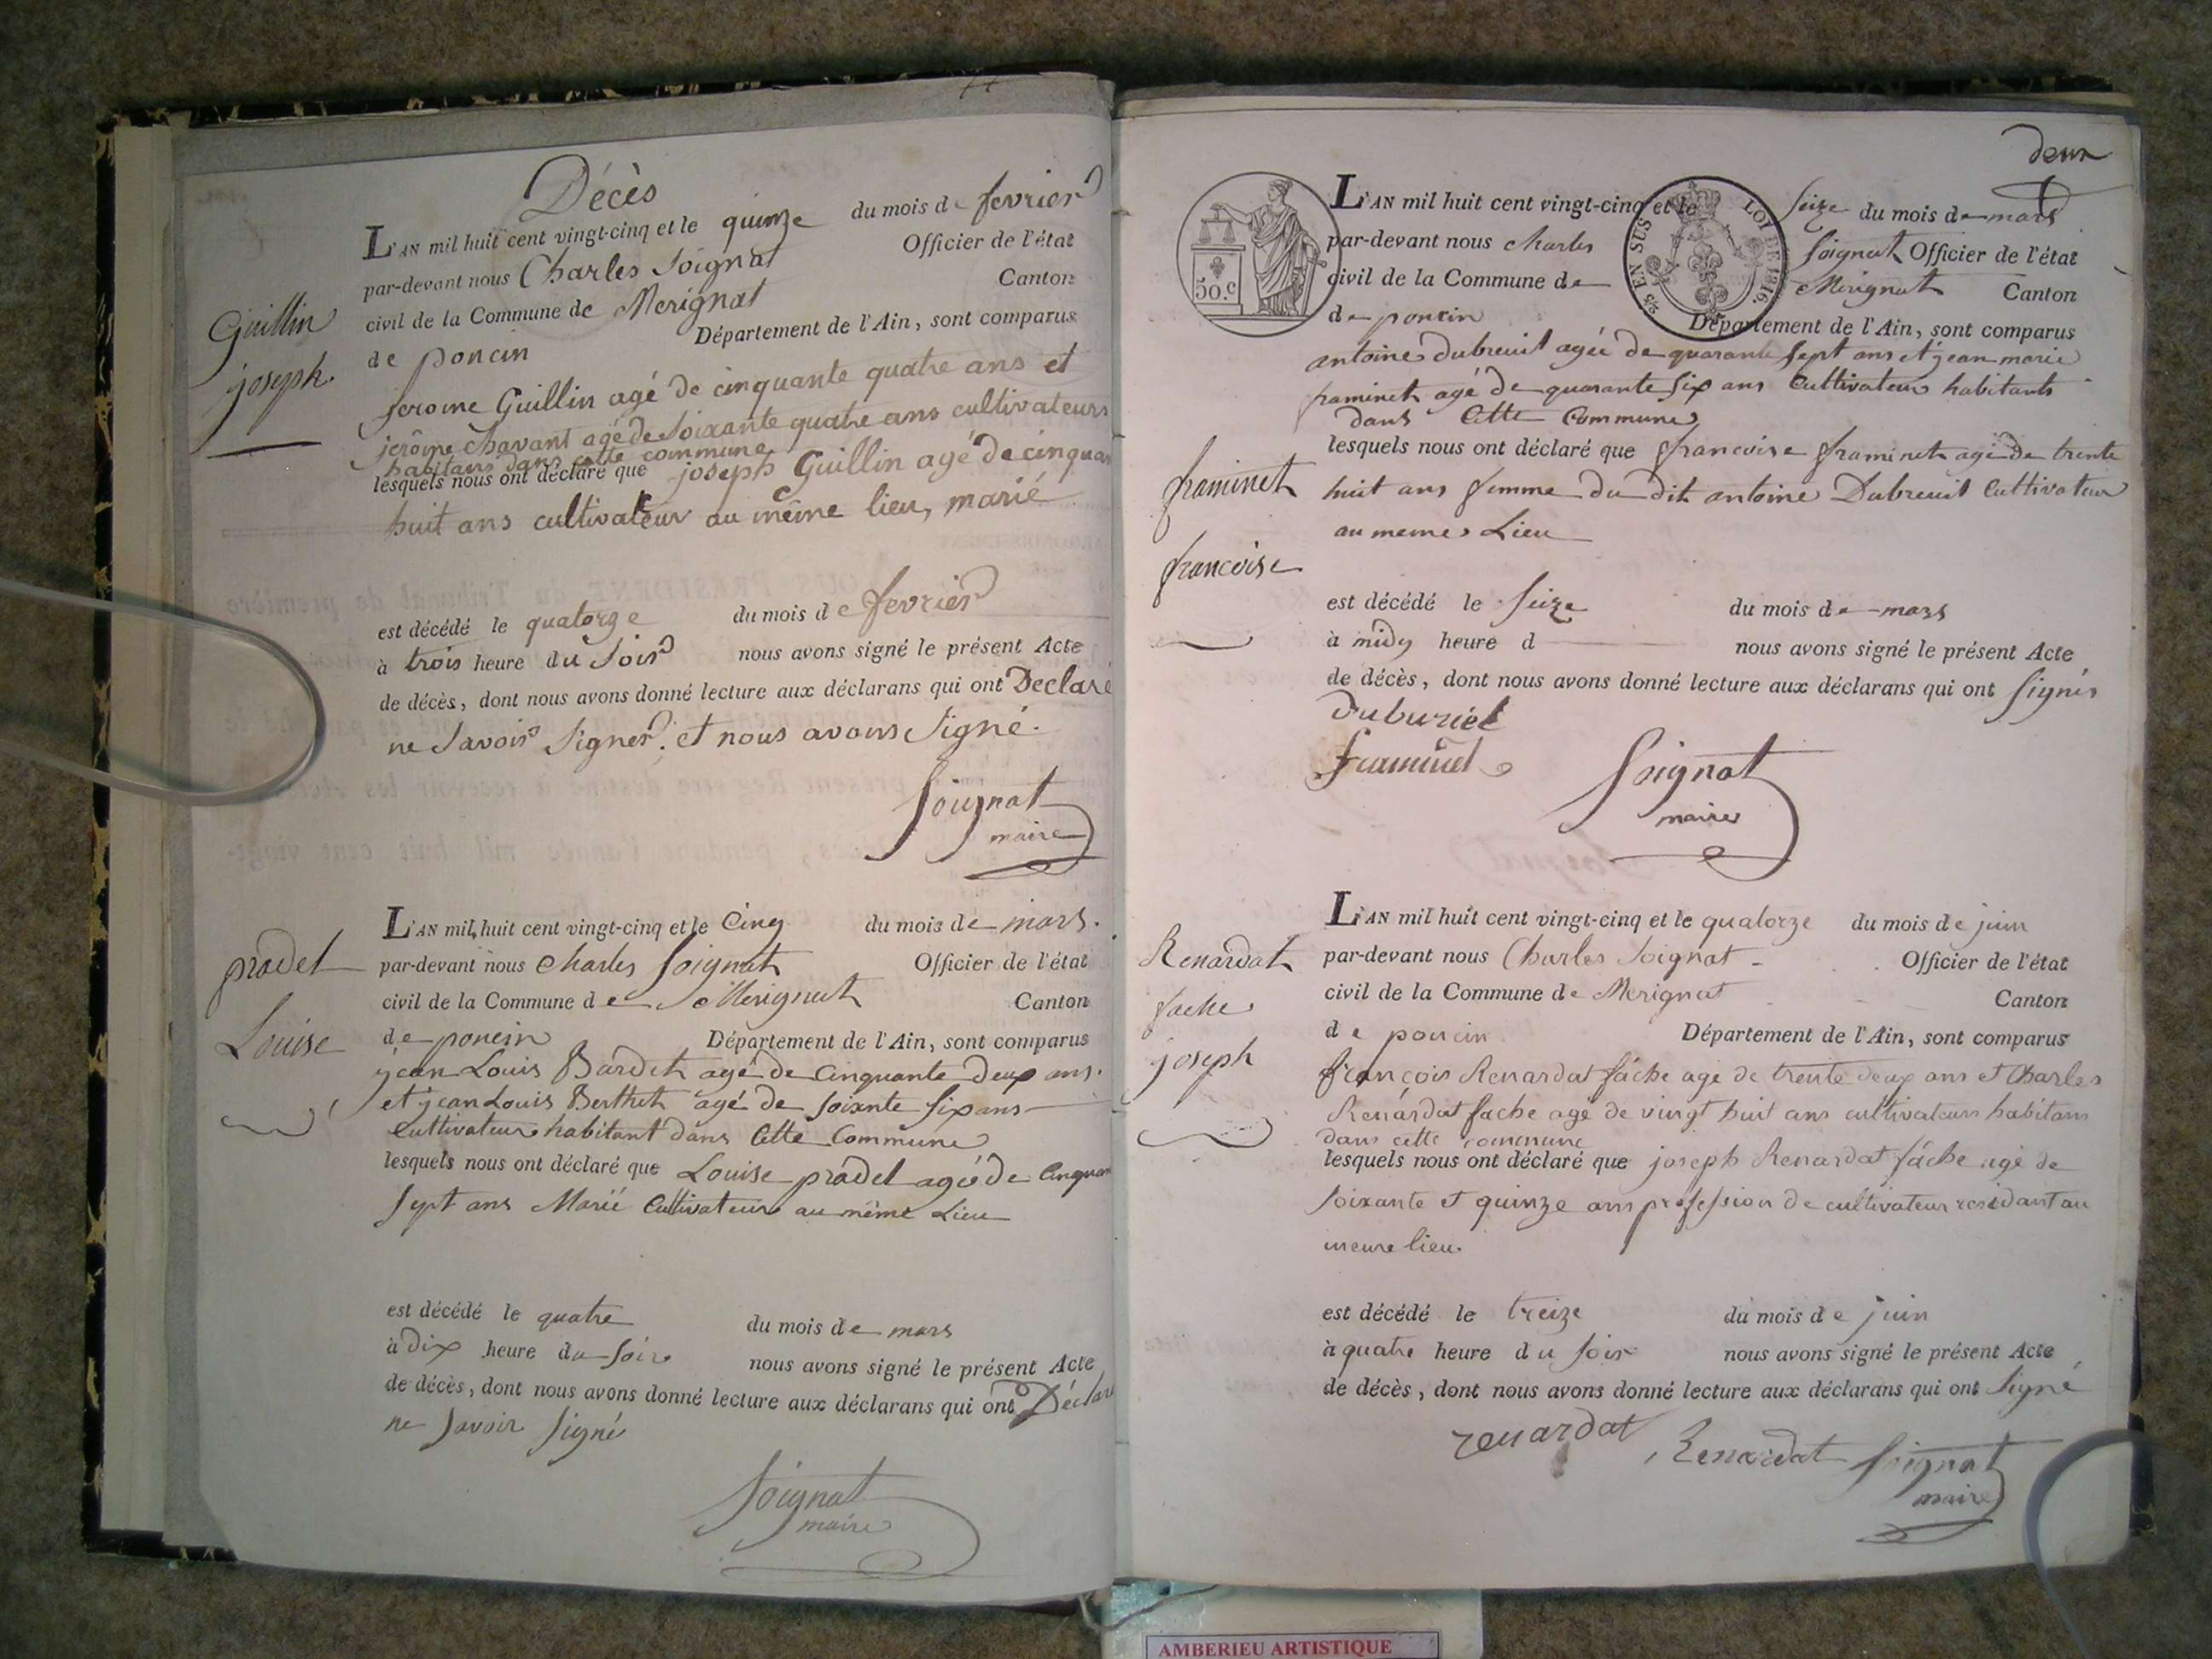 Décès
L'AN mil huit cent vingt-cinq et le quinze du mois de fevrier
par-devant nous Charles Soignat Officier de l'état
civil de la Commune de Merignat Canton
de poncin Département de l'Ain, sont comparus
Guillin
joseph.
jerome Guillin agé de cinquante quatre ans et
jerôme chavant agé de soixante quatre ans cultivateurs
habitans dans cette commune
lesquels nous ont déclaré que joseph Guillin agé de cinquan
huit ans cultivateur au même lieu, marié
est décédé le quatorze du mois de fevrier
à trois heure du soir nous avons signé le présent Acte
de décès, dont nous avons donné lecture aux déclarans qui ont Declaré
ne savoir signer, et nous avons signé.
Soignat
maire
pradel
Louise
L'AN mil huit cent vingt-cinq et le cinq du mois de mars.
par-devant nous Charles Soignat Officier de l'état
civil de la Commune de Merignat Canton
de poncin Département de l'Ain, sont comparus
jean Louis Bardet agé de cinquante deux ans.
et jean Louis Berthet agé de soixnte six ans
cultivateur habitant dans cette commune
lesquels nous ont déclaré que Louise pradel agé de cinquan
sept ans Marié cultivateur au même Lieu
est décédé le quatre du mois de mars
à dix heure du soir nous avons signé le présent Acte
de décès, dont nous avons donné lecture aux déclarans qui ont Déclar
ne savoir signé
Soignat
maire
deux
50.c
25 EN SUS LOI DE 1816.
L'AN mil huit cent vingt-cinq et le seize du mois de mars
par-devant nous charles Soignat Officier de l'état
civil de la Commune de Merignat Canton
de poncin Département de l'Ain, sont comparus
antoine dubreuil agée de quarante sept ans et jean marie
framinet agé de quarante six ans cultivateur habitants
dans cette commune
lesquels nous ont déclaré que francoise framinet agé de trente
huit ans femme du dit antoine Dubreuil cultivateur
au meme Lieu
framinet
francoise
est décédé le seize du mois de mars
à midy heure d nous avons signé le présent Acte
de décès, dont nous avons donné lecture aux déclarans qui ont signés
Duburiel
framinet
Soignat
maire
Renardat
fache
joseph
L'AN mil huit cent vingt-cinq et le quatorze du mois de juin
par-devant nous Charles Soignat Officier de l'état
civil de la Commune de Merignat Canton
de poncin Département de l'Ain, sont comparus
françois Renardat fâche agé de trente deux ans et Charles
Renardat fache agé de vingt huit ans cultivateurs habitans
dans cette commune
lesquels nous ont déclaré que joseph Renardat fâche agé de
soixante et quinze ans profession de cultivateur residant au
meme lieu.
est décédé le treize du mois de juin
à quatre heure du soir nous avons signé le présent Acte
de décès, dont nous avons donné lecture aux déclarans qui ont signé
renardat Renardat Soignat
maire
AMBERIEU ARTISTIQUE